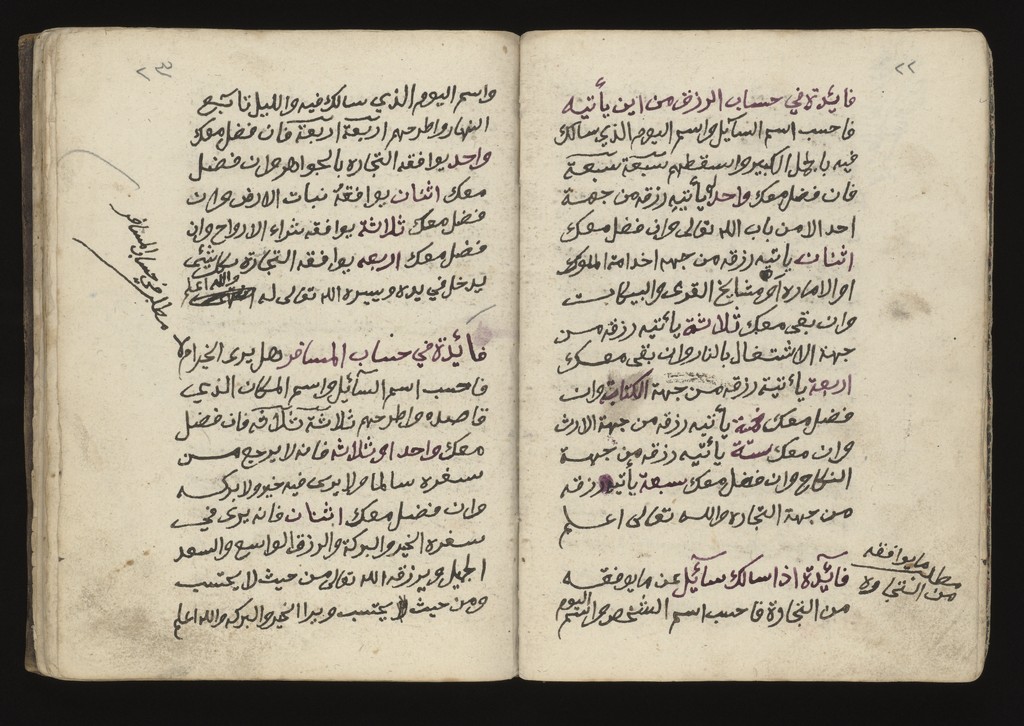 ٢٢
فائدة في حساب الرزق من اين يأتيه
فاحسب اسم السائل واسم اليوم الذي سالك
فيه بالجمل الكبير واسقطهم سبعة سبعة
فان فضل معك واحد يأتيه رزقه من جهة
احد الامن باب الله تعالى وان فضل معك
اثنان ياتيه رزقه من جهه اخدامة الملوك
او الاماره او مشايخ القرى والبيكات
وان بقى معك ثلاثة يأتيه رزقه من
جهة الاشتغال بالنار وان بقى معك
اربعة يأتيه رزقه من جهة الكتاب وان
فضل معك خمسة يأتيه رزقه من جهة الارث
وان معك ستة يأتيه رزقه من جهة
النكاح وان فضل معك سبعة يأتيه رزقه
من جهة التجاره والله تعالى اعلم
فآئدة اذا سالك سآئل عن ما يوفقه
من التجارة فاحسب اسم الشخص واسم اليوم
مطلب ما يوافقه
من التجاره
٢٣
واسم اليوم الذي سالك فيه والليل تابع
النهار واطرحهم اربعة اربعة فان فضل معك
واحد يوافقه التجاره بالجواهر وان فضل
معك اثنان يوافقه نبات الارض وان
فضل معك ثلاثة يوافقه شراء الارواح وان
فضل معك اربعه يوافقه التجاره بكل شيئ
يدخل في يده وييسره الله تعالى له والله اعلم
فائدة في حساب المسافر هل يرى الخير ام لا
فاحسب اسم السآئل واسم المكان الذي
قاصده واطرحهم ثلاثة ثلاثه فان فضل
معك واحد او ثلاثه فانه لا يرجع من
سفره سالما ولا يرى فيه خير ولا بركه
وان فضل معك اثنان فانه يرى في
سفره الخير والبركة والرزق الواسع والسعد
الجميل ويرزقه الله تعالى من حيث لا يحتسب
ومن حيث لا يحتسب ويرا الخير والبركه والله اعلم
مطلب في حساب المسافر